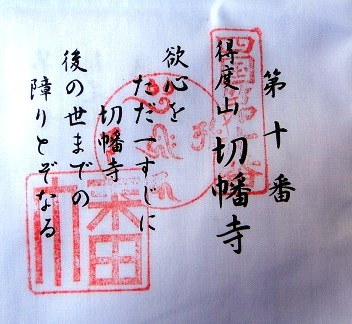 第十番
得度山 切幡寺
欲心を
ただ一すじに
切幡寺
後の世までの
障りとぞなる